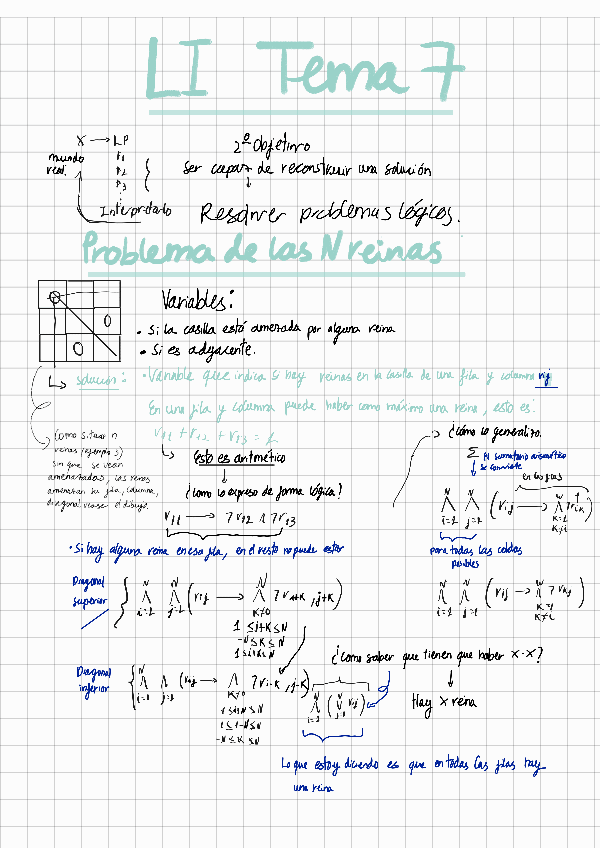 LI Tema 7
X → LP
mundo real.
r1
r2
r3
Interpretarlo
2º Objetivo
Ser capaz de reconstruir una solución
Resolver problemas lógicos.
Problema de las N reinas
Variables:
• Si la casilla está amenazada por alguna reina
• Si es adyacente.
↳ solución:
• Variable que indica si hay reinas en la casilla de una fila y columna vij
En una fila y columna puede haber como máximo una reina, esto es:
v11 + v12 + v13 = 1
↳ Esto es aritmético
¿Como lo expreso de forma lógica?
v11 → ¬v12 ∧ ¬v13
Como situar n
reinas (ejemplo 3)
sin que se vean
amenazadas, las reinas
amenazan su fila, columna,
diagonal véase el dibujo.
→ ¿Cómo lo generalizo.
Σ El sumatorio aritmético
se convierte
en las filas
N ∧ i=1 N ∧ j=1 (vij → N ∧ k=1 k≠j ¬vik
para todas las celdas
posibles
N ∧ i=1 N ∧ j=1 (vij → N ∧ k=1 k≠i ¬vkj)
• Si hay alguna reina en esa fila, en el resto no puede estar
Diagonal
superior
N ∧ i=1 N ∧ j=1 (vij → N ∧ k≠0 ¬vi+k, j+k)
1 ≤ j+k ≤ N
-N ≤ k ≤ N
1 ≤ i+k ≤ N
Diagonal
inferior
N ∧ i=1 ∧ j=1 (vij → ∧ k≠0 ¬vi-k, j-k)
-N ≤ k ≤ N
N ∧ i=1 (N ∨ vij)
¿Como saber que tienen que haber x·x?
Hay x reina
Lo que estoy diciendo es que en todas las filas hay
una reina